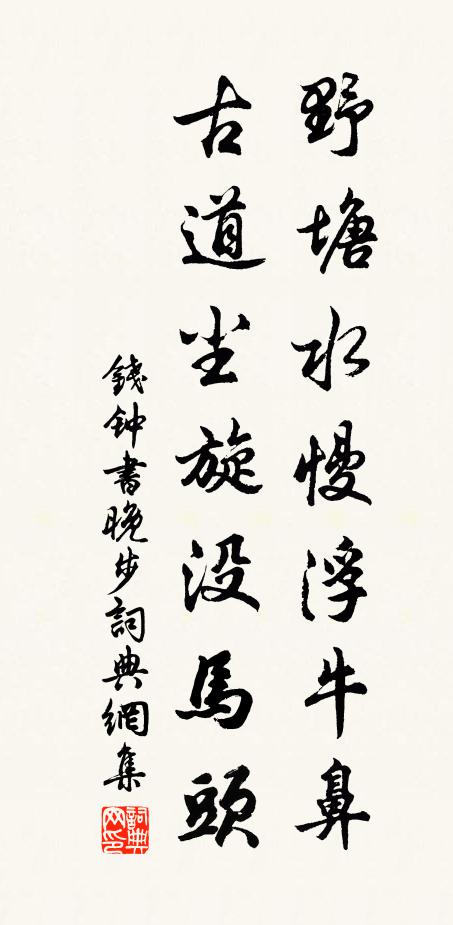 野塘水慢浮牛鼻
古道尘旋没馬頭
錢钟書晚步詞典網集
詞典網印